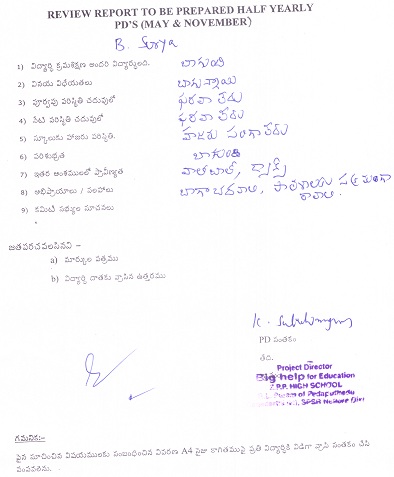 REVIEW REPORT TO BE PREPARED HALF YEARLY
PD'S (MAY & NOVEMBER)
B. Surya
1) విద్యార్థి క్రమశిక్షణ అందరి విద్యార్థులది. బాగుంది
2) వినయ విధేయతలు బాగున్నాయి
3) పూర్వపు పరిస్థితి చదువులో ఫరవా లేదు
4) నేటి పరిస్థితి చదువులో ఫరవా లేదు
5) స్కూలుకు హాజరు పరిస్థితి. హాజరు సంగా లేదు
6) పరిశుభ్రత బాగుంది
7) ఇతర అంశములలో ప్రావీణ్యత వాలీబాల్,
8) అభిప్రాయాలు / సలహాలు బాగా చదవాలి, పాఠశాలకు సక్రమంగా
రావాలి.
9) కమిటీ సభ్యుల సూచనలు
జతపరచవలసినవి –
a) మార్కుల పత్రము
b) విద్యార్థి దాతకు వ్రాసిన ఉత్తరము
PD సంతకం
తేది.
Project Director
Big help for Education
Z.P.P. HIGH SCHOOL
of Pedaputhedu
SPSR Nellore Dist
గమనిక:–
పైన సూచించిన విషయములకు సంబంధించిన వివరణ A4 సైజు కాగితముపై ప్రతి విద్యార్థికి విడిగా వ్రాసి సంతకం చేసి
పంపవలెను.